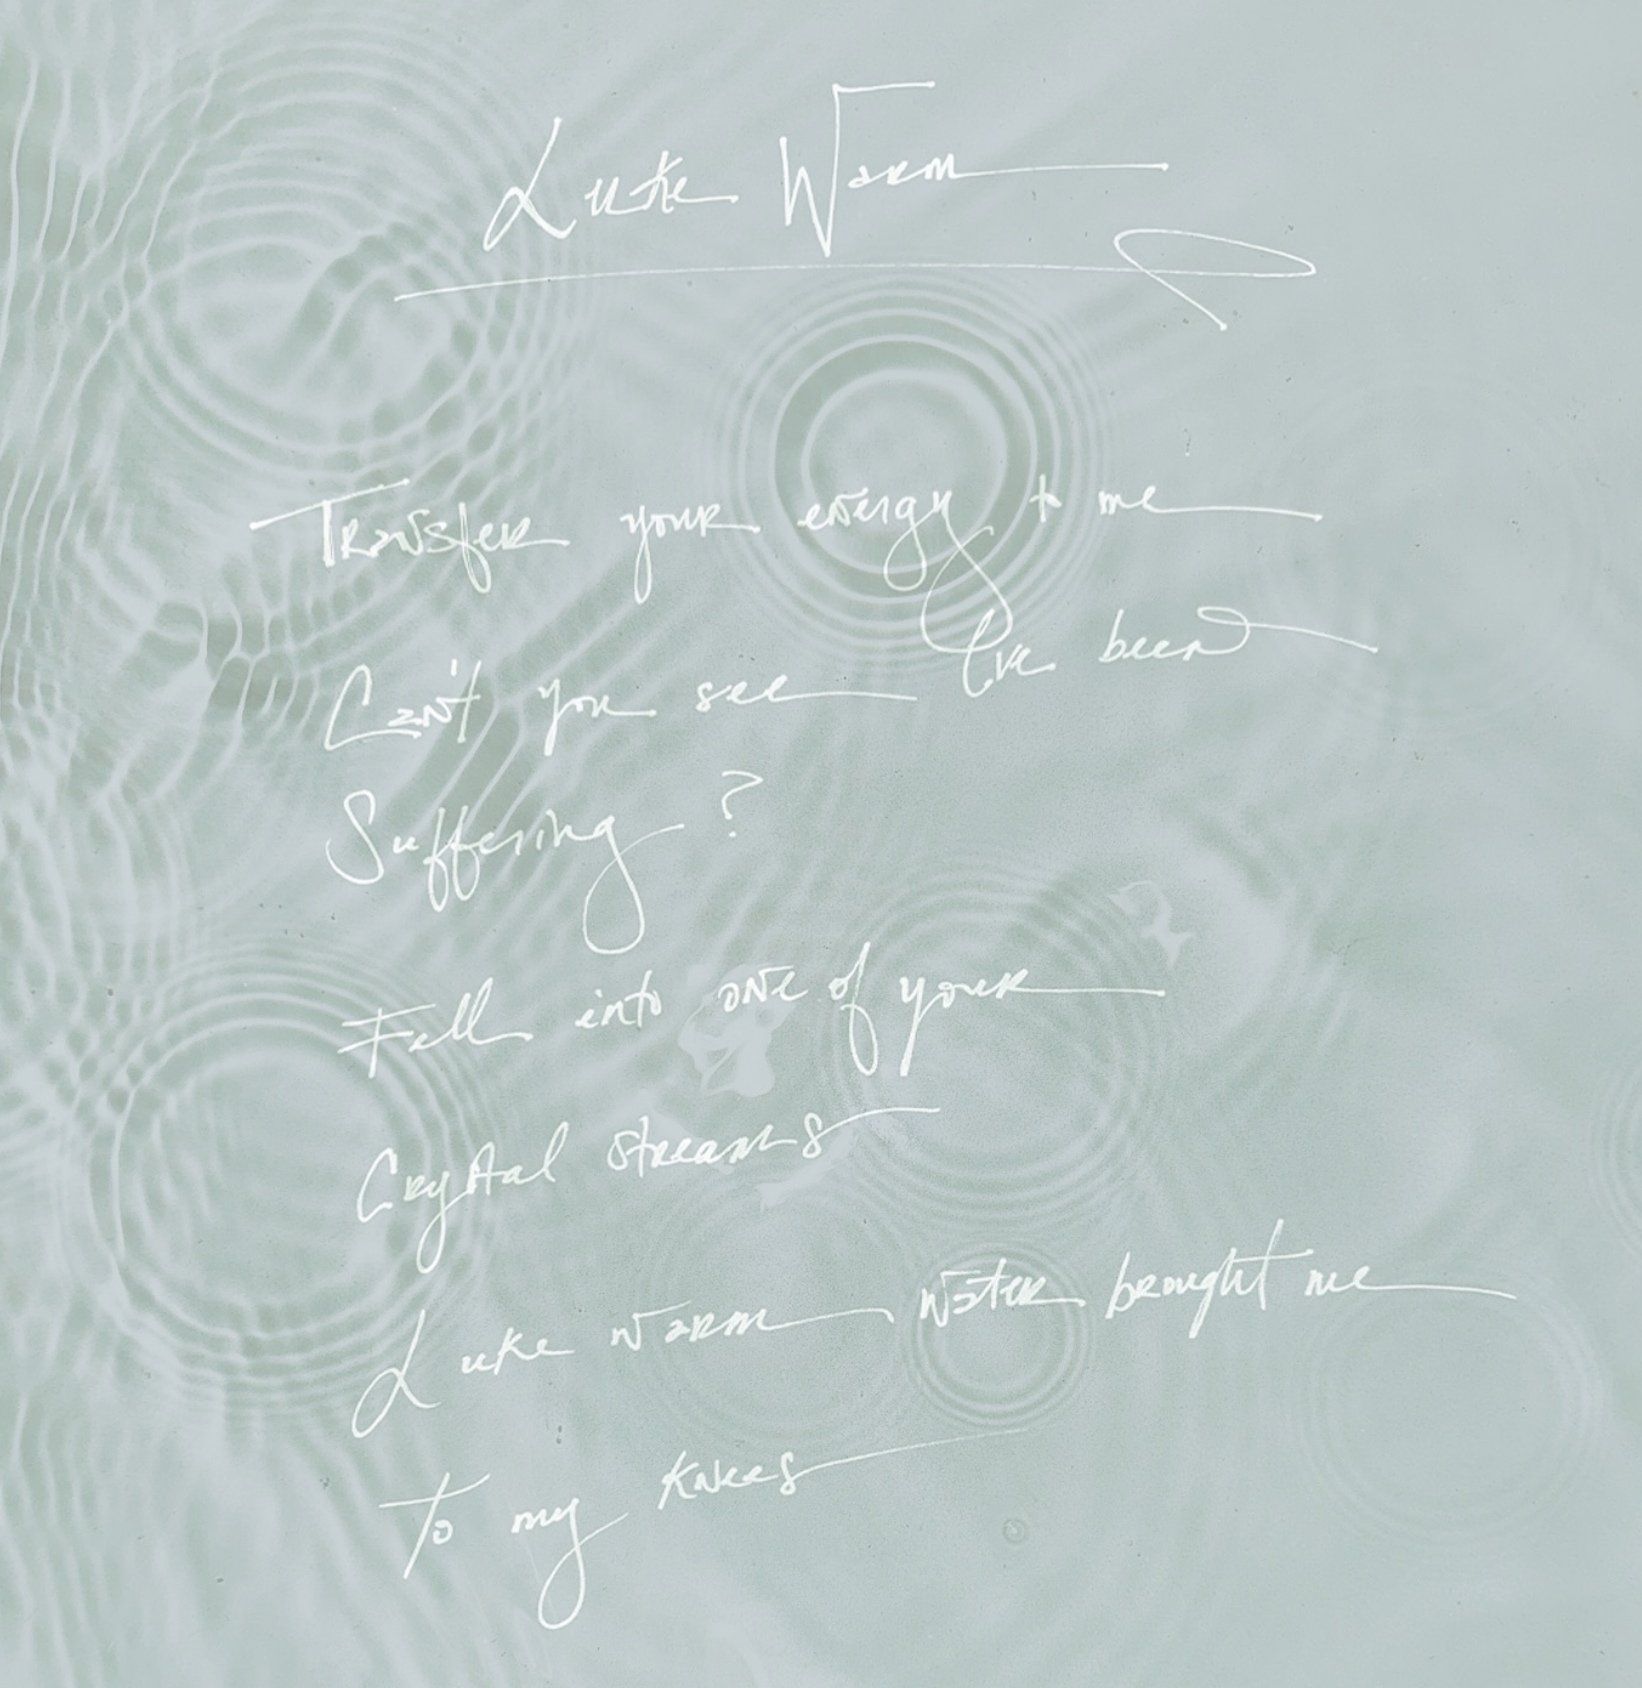 Luke Warm
Transfer your energy to me
Can't you see I've been
Suffering?
Fell into one of your
Crystal streams
Luke warm water brought me
To my knees